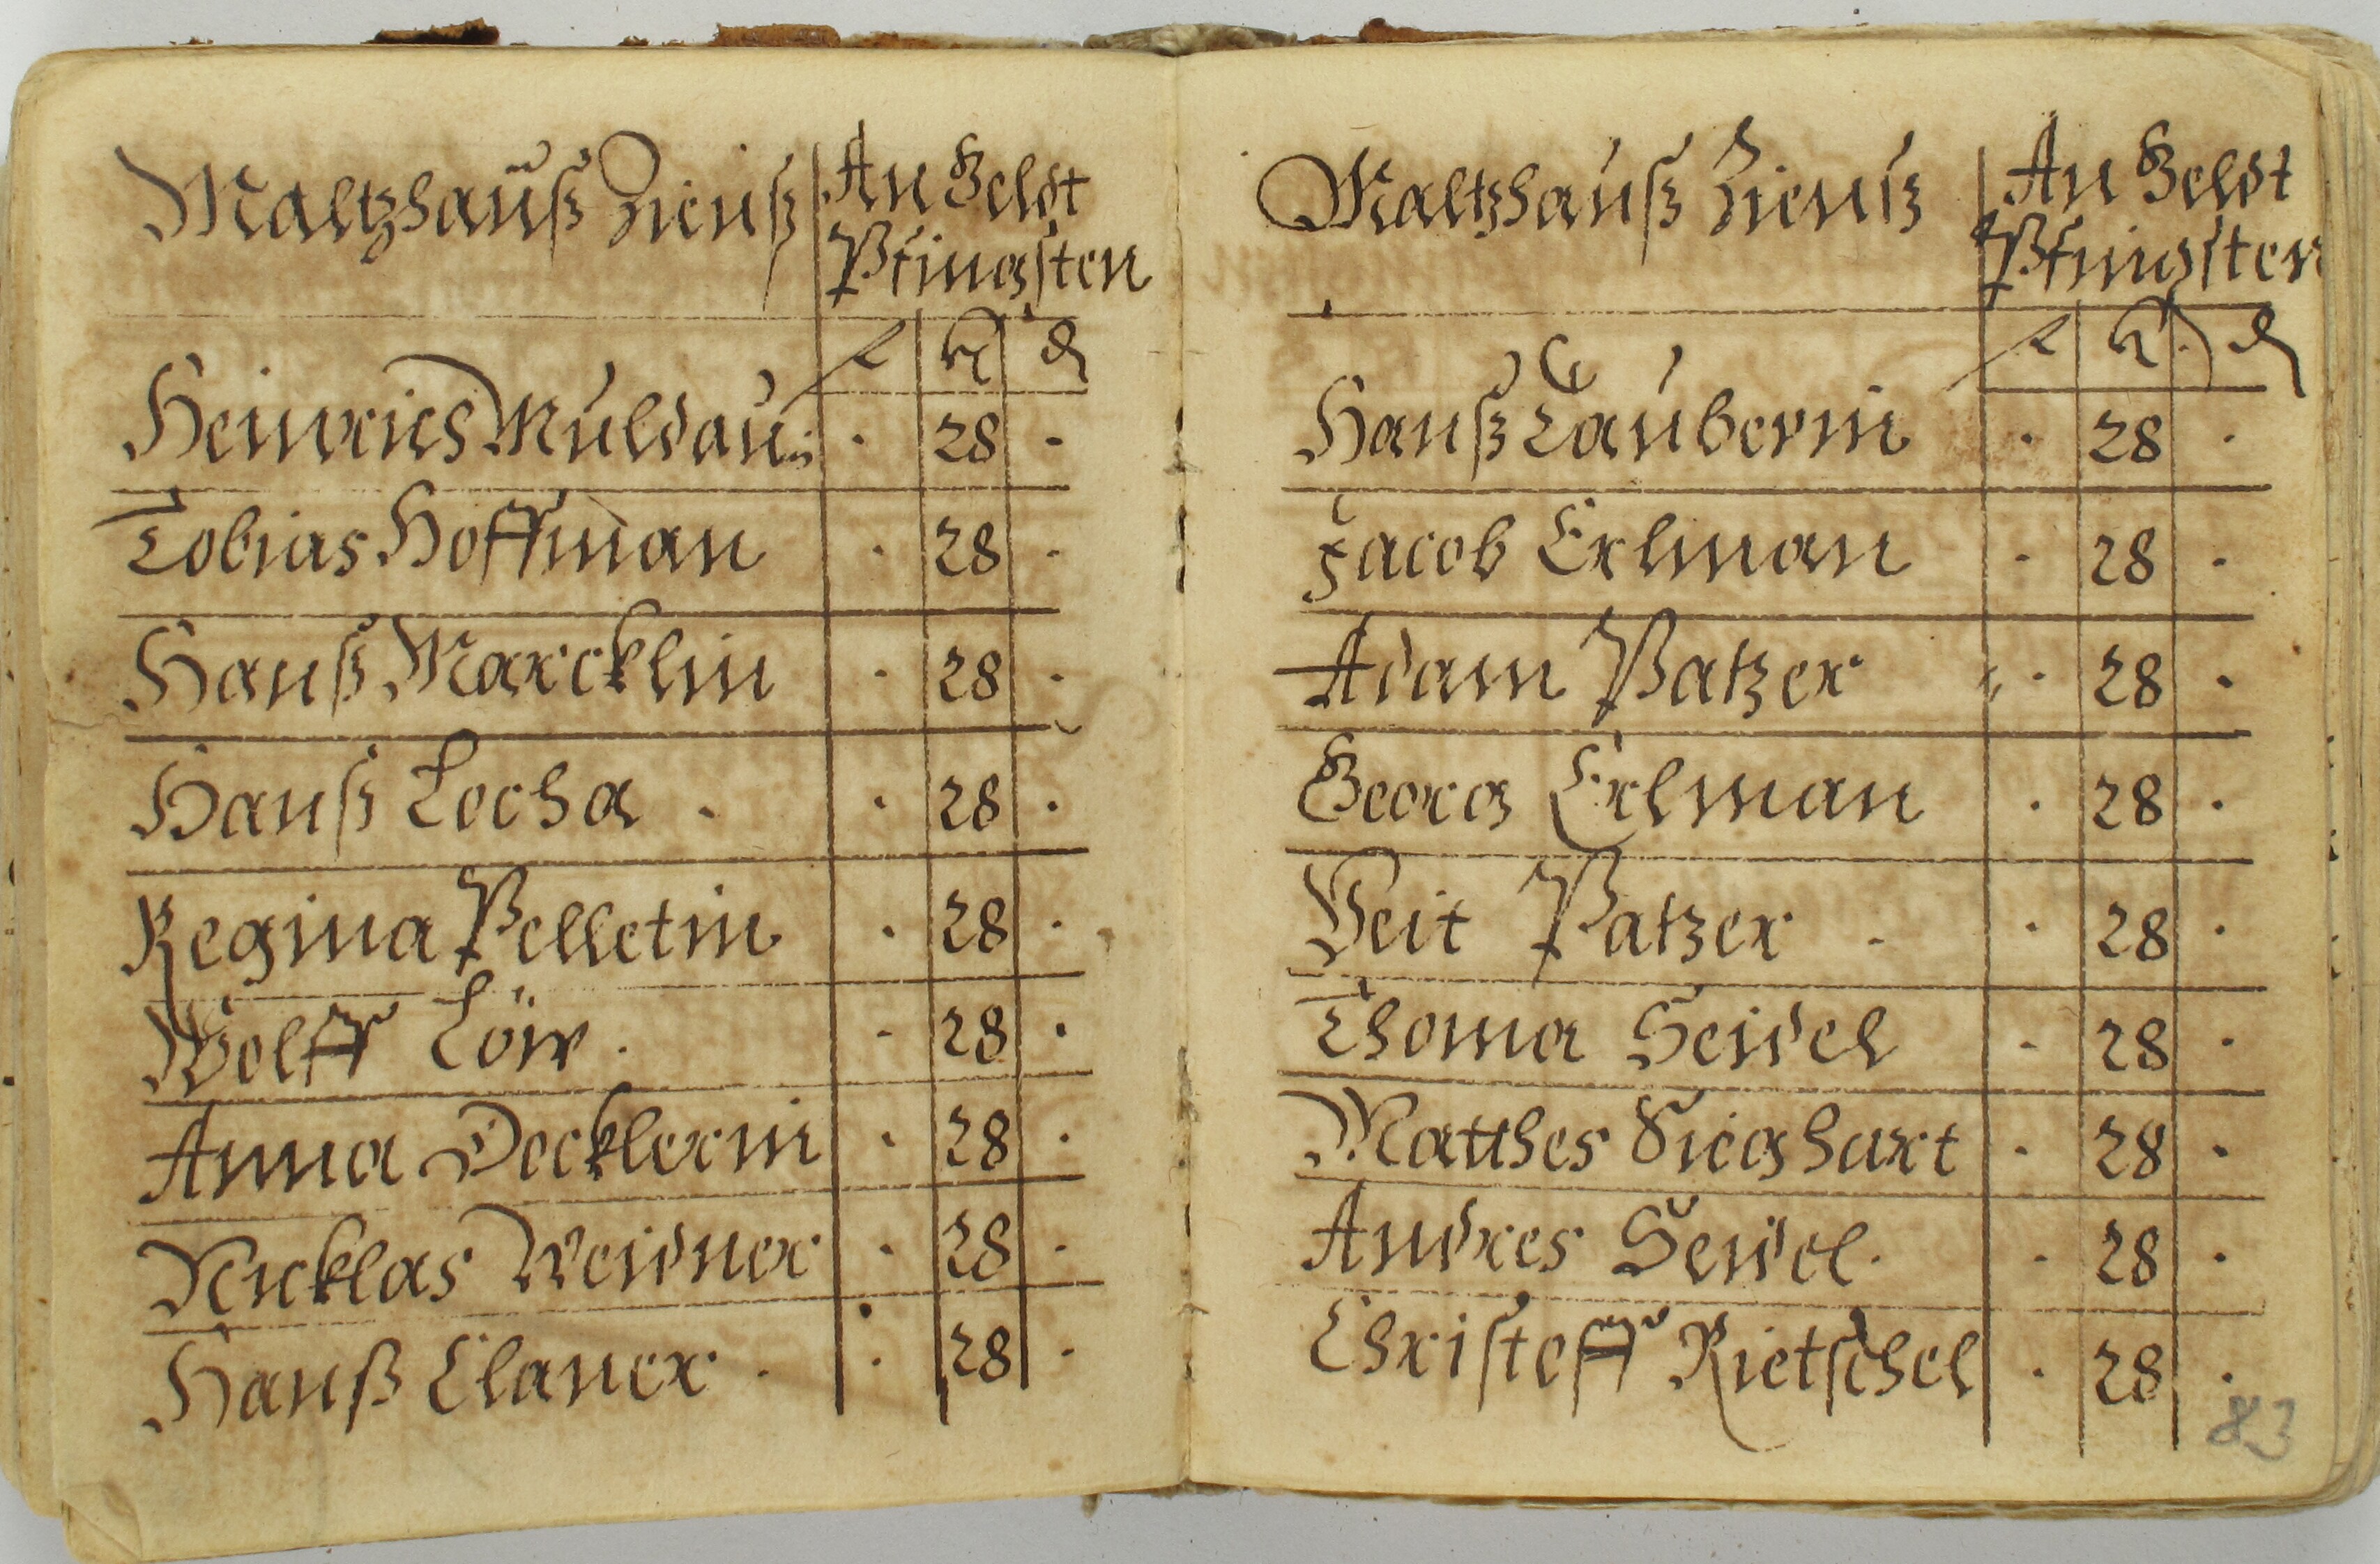 Maltzhauß Zienß An Geldt
Pfingsten
kr d
Heinrich Muldaur · 28 ·
Tobias Hoffman · 28 ·
Hanß Marcklin · 28 ·
Hanß Locha · · 28 ·
Regina Pelletin · 28 ·
Wolff Löw · · 28 ·
Anna Decklerin · 28 ·
Nicklas Weidner · 28 ·
Hanß Claner · · 28 ·
Maltzhauß Zienß An Geldt
Pfingsten
kr d
Hanß Tauberin · 28 ·
Jacob Erlman · 28 ·
Adam Patzer · 28 ·
Georg Erlman · 28 ·
Veit Patzer · · 28 ·
Thoma Heidel · 28 ·
Matthes Sieghart · 28 ·
Andres Heidel · · 28 ·
Christoff Rietschel · 28 ·
83